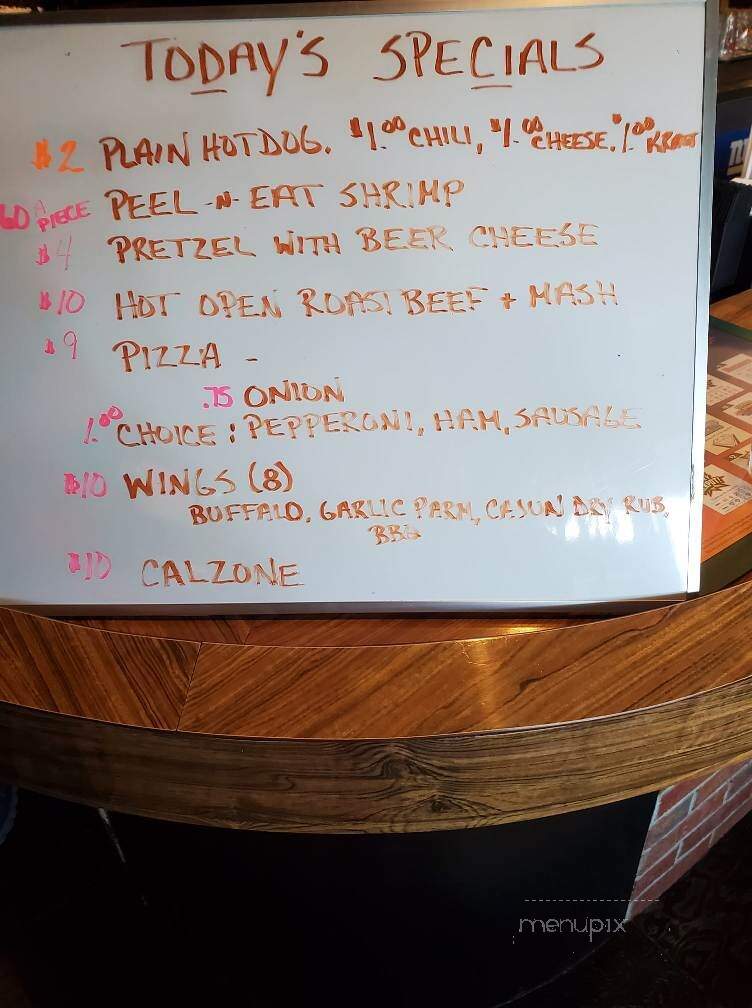 TODAY'S SPECIALS
$2 PLAIN HOTDOG. $1.00 CHILI, $1.00 CHEESE. $1.00 KRAUT
60 A PIECE PEEL-N-EAT SHRIMP
$4 PRETZEL WITH BEER CHEESE
$10 HOT OPEN ROAST BEEF + MASH
$9 PIZZA -
.75 ONION
1.00 CHOICE: PEPPERONI, HAM, SAUSAGE
$10 WINGS (8)
BUFFALO, GARLIC PARM, CAJUN DRY RUB,
BBQ
$10 CALZONE
menupix